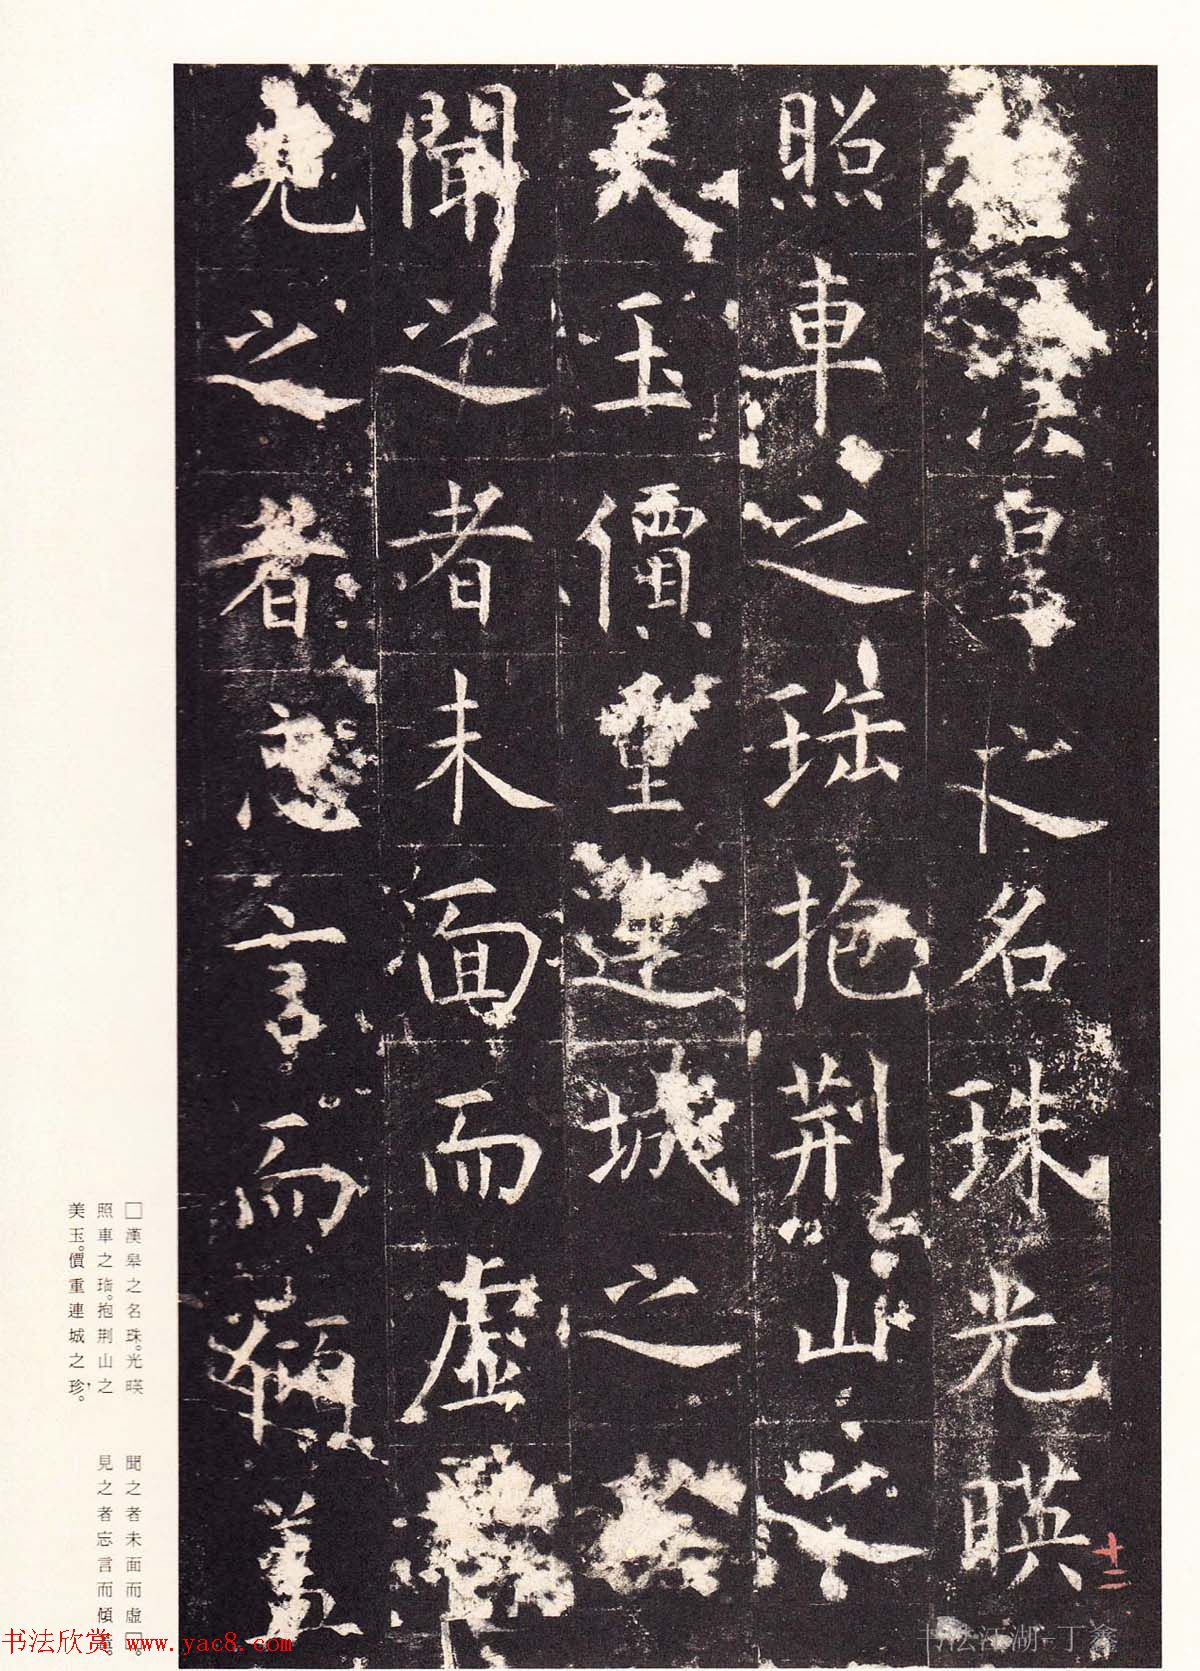 漢皐之名珠光暎
照車之珤抱荆山之
美玉價重連城之珍
聞之者未面而虛
見之者忘言而傾蓋
十二
□漢皐之名珠。光暎
照車之珤。抱荆山之
美玉。價重連城之珍。
聞之者未面而虛□。
見之者忘言而傾蓋。
书法欣赏 www.yac8.com
书法江湖-丁鑫